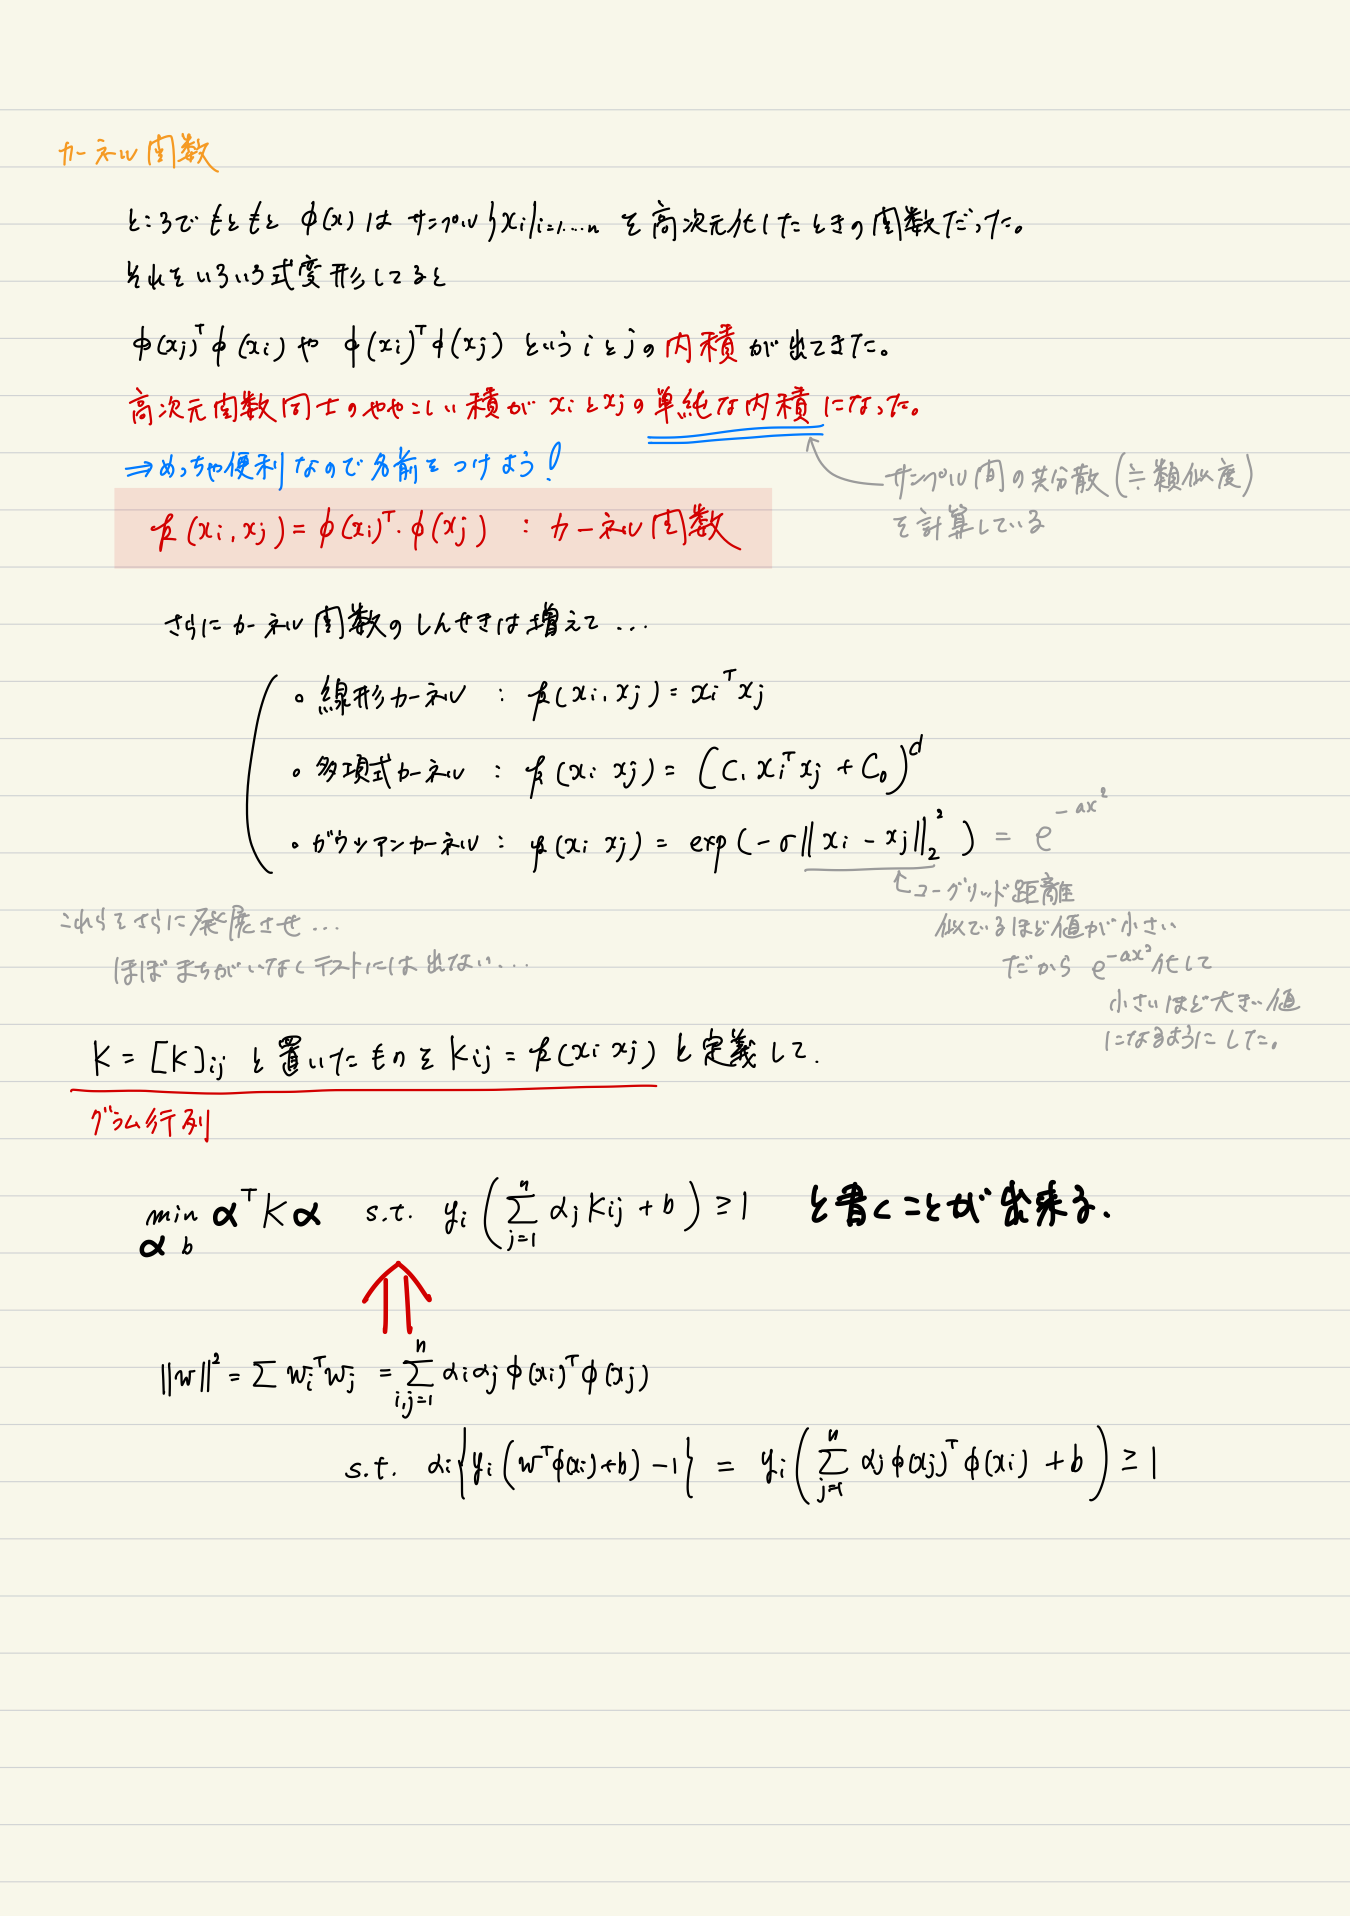 カーネル関数
ところでもともと φ(x) は サンプル{xi}i=1,…,n を高次元化したときの関数だった。
それをいろいろ式変形してると
φ(xj)ᵀφ(xi) や φ(xi)ᵀφ(xj) という i と j の 内積 が出てきた。
高次元関数同士のややこしい積が xi と xj の 単純な内積 になった。
⇒ めっちゃ便利なので名前をつけよう!
サンプル間の共分散 (≒類似度)
を計算している
k(xi, xj) = φ(xi)ᵀ・φ(xj) : カーネル関数
さらにカーネル関数のしんせきは増えて…
○ 線形カーネル : k(xi, xj) = xiᵀxj
○ 多項式カーネル : k(xi xj) = (C₁ xiᵀxj + C₀)^d
○ ガウシアンカーネル : k(xi xj) = exp(-σ‖xi - xj‖₂²) = e^{-ax²}
ユークリッド距離
似ているほど値が小さい
だから e^{-ax²} 化して
小さいほど大きい値
になるようにした。
これらをさらに発展させ…
ほぼまちがいなくテストには出ない…
K = [K]ij と置いたものを Kij = k(xi xj) と定義して.
グラム行列
min αᵀKα s.t. yi(Σ_{j=1}^{n} αj Kij + b) ≥ 1 と書くことが出来る.
α b
‖w‖² = Σ wiᵀwj = Σ_{i,j=1}^{n} αiαj φ(xi)ᵀφ(xj)
s.t. αi{yi(wᵀφ(xi)+b) -1} = yi(Σ_{j=1}^{n} αj φ(xj)ᵀφ(xi) + b) ≥ 1